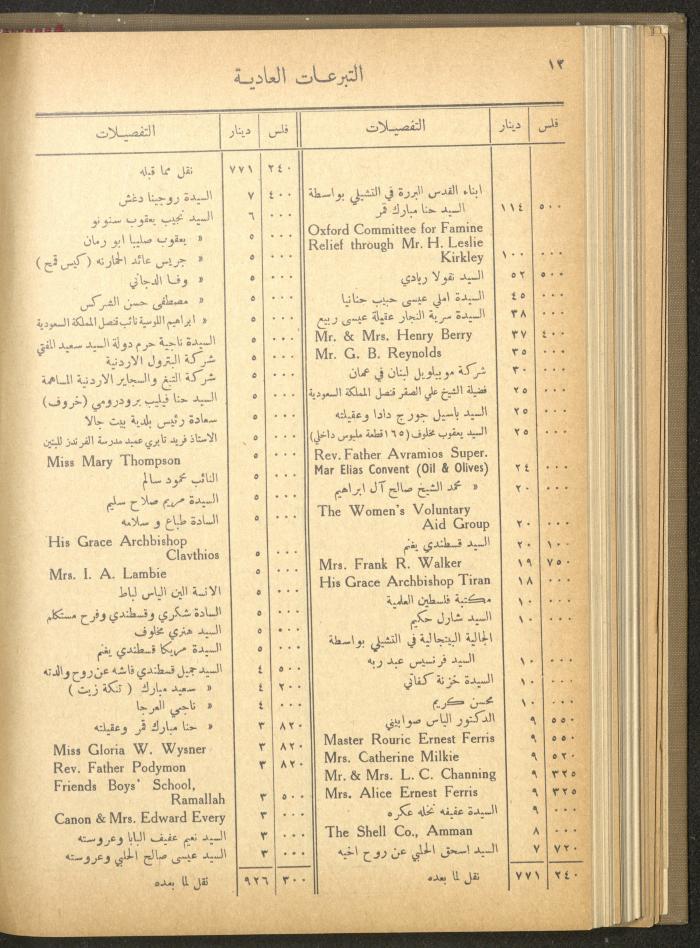 ١٣
التبرعات العادية
فلس دينار التفصيلات
ابناء القدس البررة في التشيلي بواسطة
السيد حنا مبارك قمر ١١٤ ٥٠٠
Oxford Committee for Famine
Relief through Mr. H. Leslie
Kirkley ١٠٠ ٠٠٠
السيد نقولا ريادي ٥٢ ٥٠٠
السيدة املي عيسى حبيب حنانيا ٤٥ ٠٠٠
السيدة سرية النجار عقيلة عيسى ربيع ٣٨ ٠٠٠
Mr. & Mrs. Henry Berry ٣٧ ٤٠٠
Mr. G. B. Reynolds ٣٥ ٠٠٠
شركة موبيلويل لبنان في عمان ٣٠ ٠٠٠
فضيلة الشيخ علي الصقر قنصل المملكة السعودية ٢٥ ٠٠٠
السيد باسيل جورج دادا وعقيلته ٢٥ ٠٠٠
السيد يعقوب مخلوف (١٦٥ قطعة ملبوس داخلي) ٢٥ ٠٠٠
Rev. Father Avramios Super.
Mar Elias Convent (Oil & Olives) ٢٤ ٠٠٠
« محمد الشيخ صالح آل ابراهيم ٢٠ ٠٠٠
The Women's Voluntary
Aid Group ٢٠ ٠٠٠
السيد قسطندي يغنم ٢٠ ١٠٠
Mrs. Frank R. Walker ١٩ ٧٥٠
His Grace Archbishop Tiran ١٨ ٠٠٠
مكتبة فلسطين العلمية ١٠ ٠٠٠
السيد شارل حكيم ١٠ ٠٠٠
الجالية البيتجالية في التشيلي بواسطة
السيد فرنسيس عبد ربه ١٠ ٠٠٠
السيدة خزنة كفاني ١٠ ٠٠٠
محسن كريم ١٠ ٠٠٠
الدكتور الياس صوابيني ٩ ٥٥٠
Master Rouric Ernest Ferris ٩ ٥٥٠
Mrs. Catherine Milkie ٩ ٥٢٠
Mr. & Mrs. L. C. Channing ٩ ٣٢٥
Mrs. Alice Ernest Ferris ٩ ٣٢٥
السيدة عفيفه نخله عكره ٩ ٠٠٠
The Shell Co., Amman ٨ ٠٠٠
السيد اسحق الحلبي عن روح اخيه ٧ ٧٢٠
نقل لما بعده ٧٧١ ٢٤٠
فلس دينار التفصيلات
نقل مما قبله ٧٧١ ٢٤٠
السيدة روجينا دغش ٧ ٤٠٠
السيد نجيب يعقوب سنونو ٦ ٠٠٠
« يعقوب صليبا ابو رمان ٥ ٠٠٠
« جريس عائد الخمارنه (كيس قمح) ٥ ٠٠٠
« وفا الدجاني ٥ ٠٠٠
« مصطفى حسن الشركس ٥ ٠٠٠
« ابراهيم اللوسية نائب قنصل المملكة السعودية ٥ ٠٠٠
السيدة ناجية حرم دولة السيد سعيد المفتي ٥ ٠٠٠
شركة البترول الاردنية ٥ ٠٠٠
شركة التبغ والسجاير الاردنية المساهمة ٥ ٠٠٠
السيد حنا فيليب برودرومي (خروف) ٥ ٠٠٠
سعادة رئيس بلدية بيت جالا ٥ ٠٠٠
الاستاذ فريد تابري عميد مدرسة الفرندز للبنين ٥ ٠٠٠
Miss Mary Thompson ٥ ٠٠٠
النائب محمود سالم ٥ ٠٠٠
السيدة مريم صلاح سليم ٥ ٠٠٠
السادة طباع و سلامه ٥ ٠٠٠
His Grace Archbishop
Clavthios ٥ ٠٠٠
Mrs. I. A. Lambie ٥ ٠٠٠
الانسة الين الياس لباط ٥ ٠٠٠
السادة شكري وقسطندي وفرح مستكلم ٥ ٠٠٠
السيد هنري مخلوف ٥ ٠٠٠
السيدة مريكا قسطندي يغنم ٥ ٠٠٠
السيد جميل قسطندي قاشه عن روح والدته ٤ ٥٠٠
« سعيد مبارك (تنكة زيت) ٤ ٢٠٠
« ناجي العرجا ٤ ٠٠٠
« حنا مبارك قمر وعقيلته ٣ ٨٢٠
Miss Gloria W. Wysner ٣ ٨٢٠
Rev. Father Podymon ٣ ٨٢٠
Friends Boys' School,
Ramallah ٣ ٥٠٠
Canon & Mrs. Edward Every ٣ ٠٠٠
السيد نعيم عفيف البابا وعروسته ٣ ٠٠٠
السيد عيسى صالح الحلبي وعروسته ٣ ٠٠٠
نقل لما بعده ٩٢٦ ٣٠٠